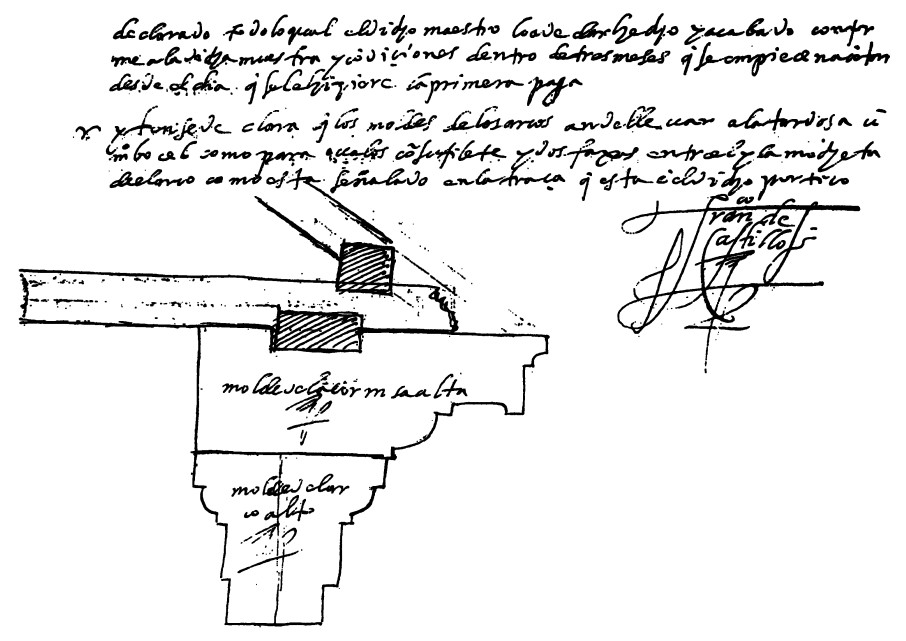 declarado todo lo qual el dicho maestro lo a de dar hecho y acabado confor
me a la dicha muestra y cõdiciones dentro de tres meses q̃ se empieçen a cõtar
desde el dia q̃ se le hiziere la primera paga
yten se declara q̃ los moldes de los arcos an de lleuar a la tardosa ũ
bocel como para con su filete y dos faxas entre el y la mocheta
del arco como esta señalado en la traça q̃ esta e el dicho portico
frãn^co de
castillo
molde de la cornisa alta
molde del ar
co alto